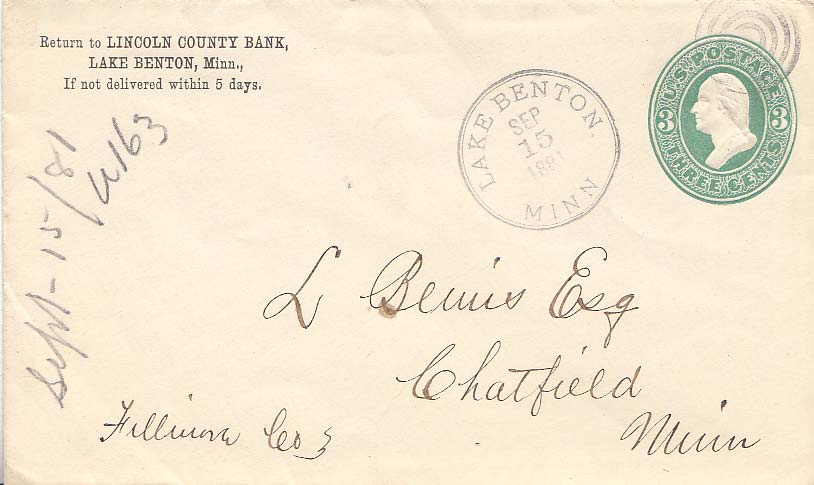 Return to LINCOLN COUNTY BANK,
LAKE BENTON, Minn.,
If not delivered within 5 days.
LAKE BENTON.
SEP
15
1881
MINN
U.S. POSTAGE
3 3
THREE CENTS
Sept - 15/81
U163
L Bemis Esq
Chatfield
Fillmore Co
Minn